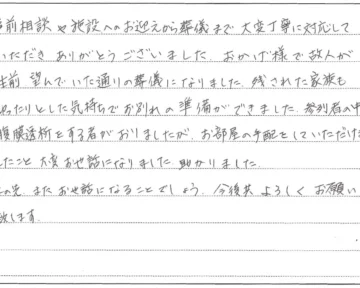 前相談や施設へのお迎えから葬儀まで大変丁寧に対応して
いただき ありがとうございました。おかげ様で故人が
生前 望んでいた通りの葬儀になりました。残された家族も
ゆったりとした気持ちでお別れの準備ができました。参列者の中
腹膜透析をする者がおりましたが、お部屋の手配をしていただけ
たこと 大変お世話になりました。助かりました。
の先、またお世話になることでしょう。今後共 よろしく お願い
致します。